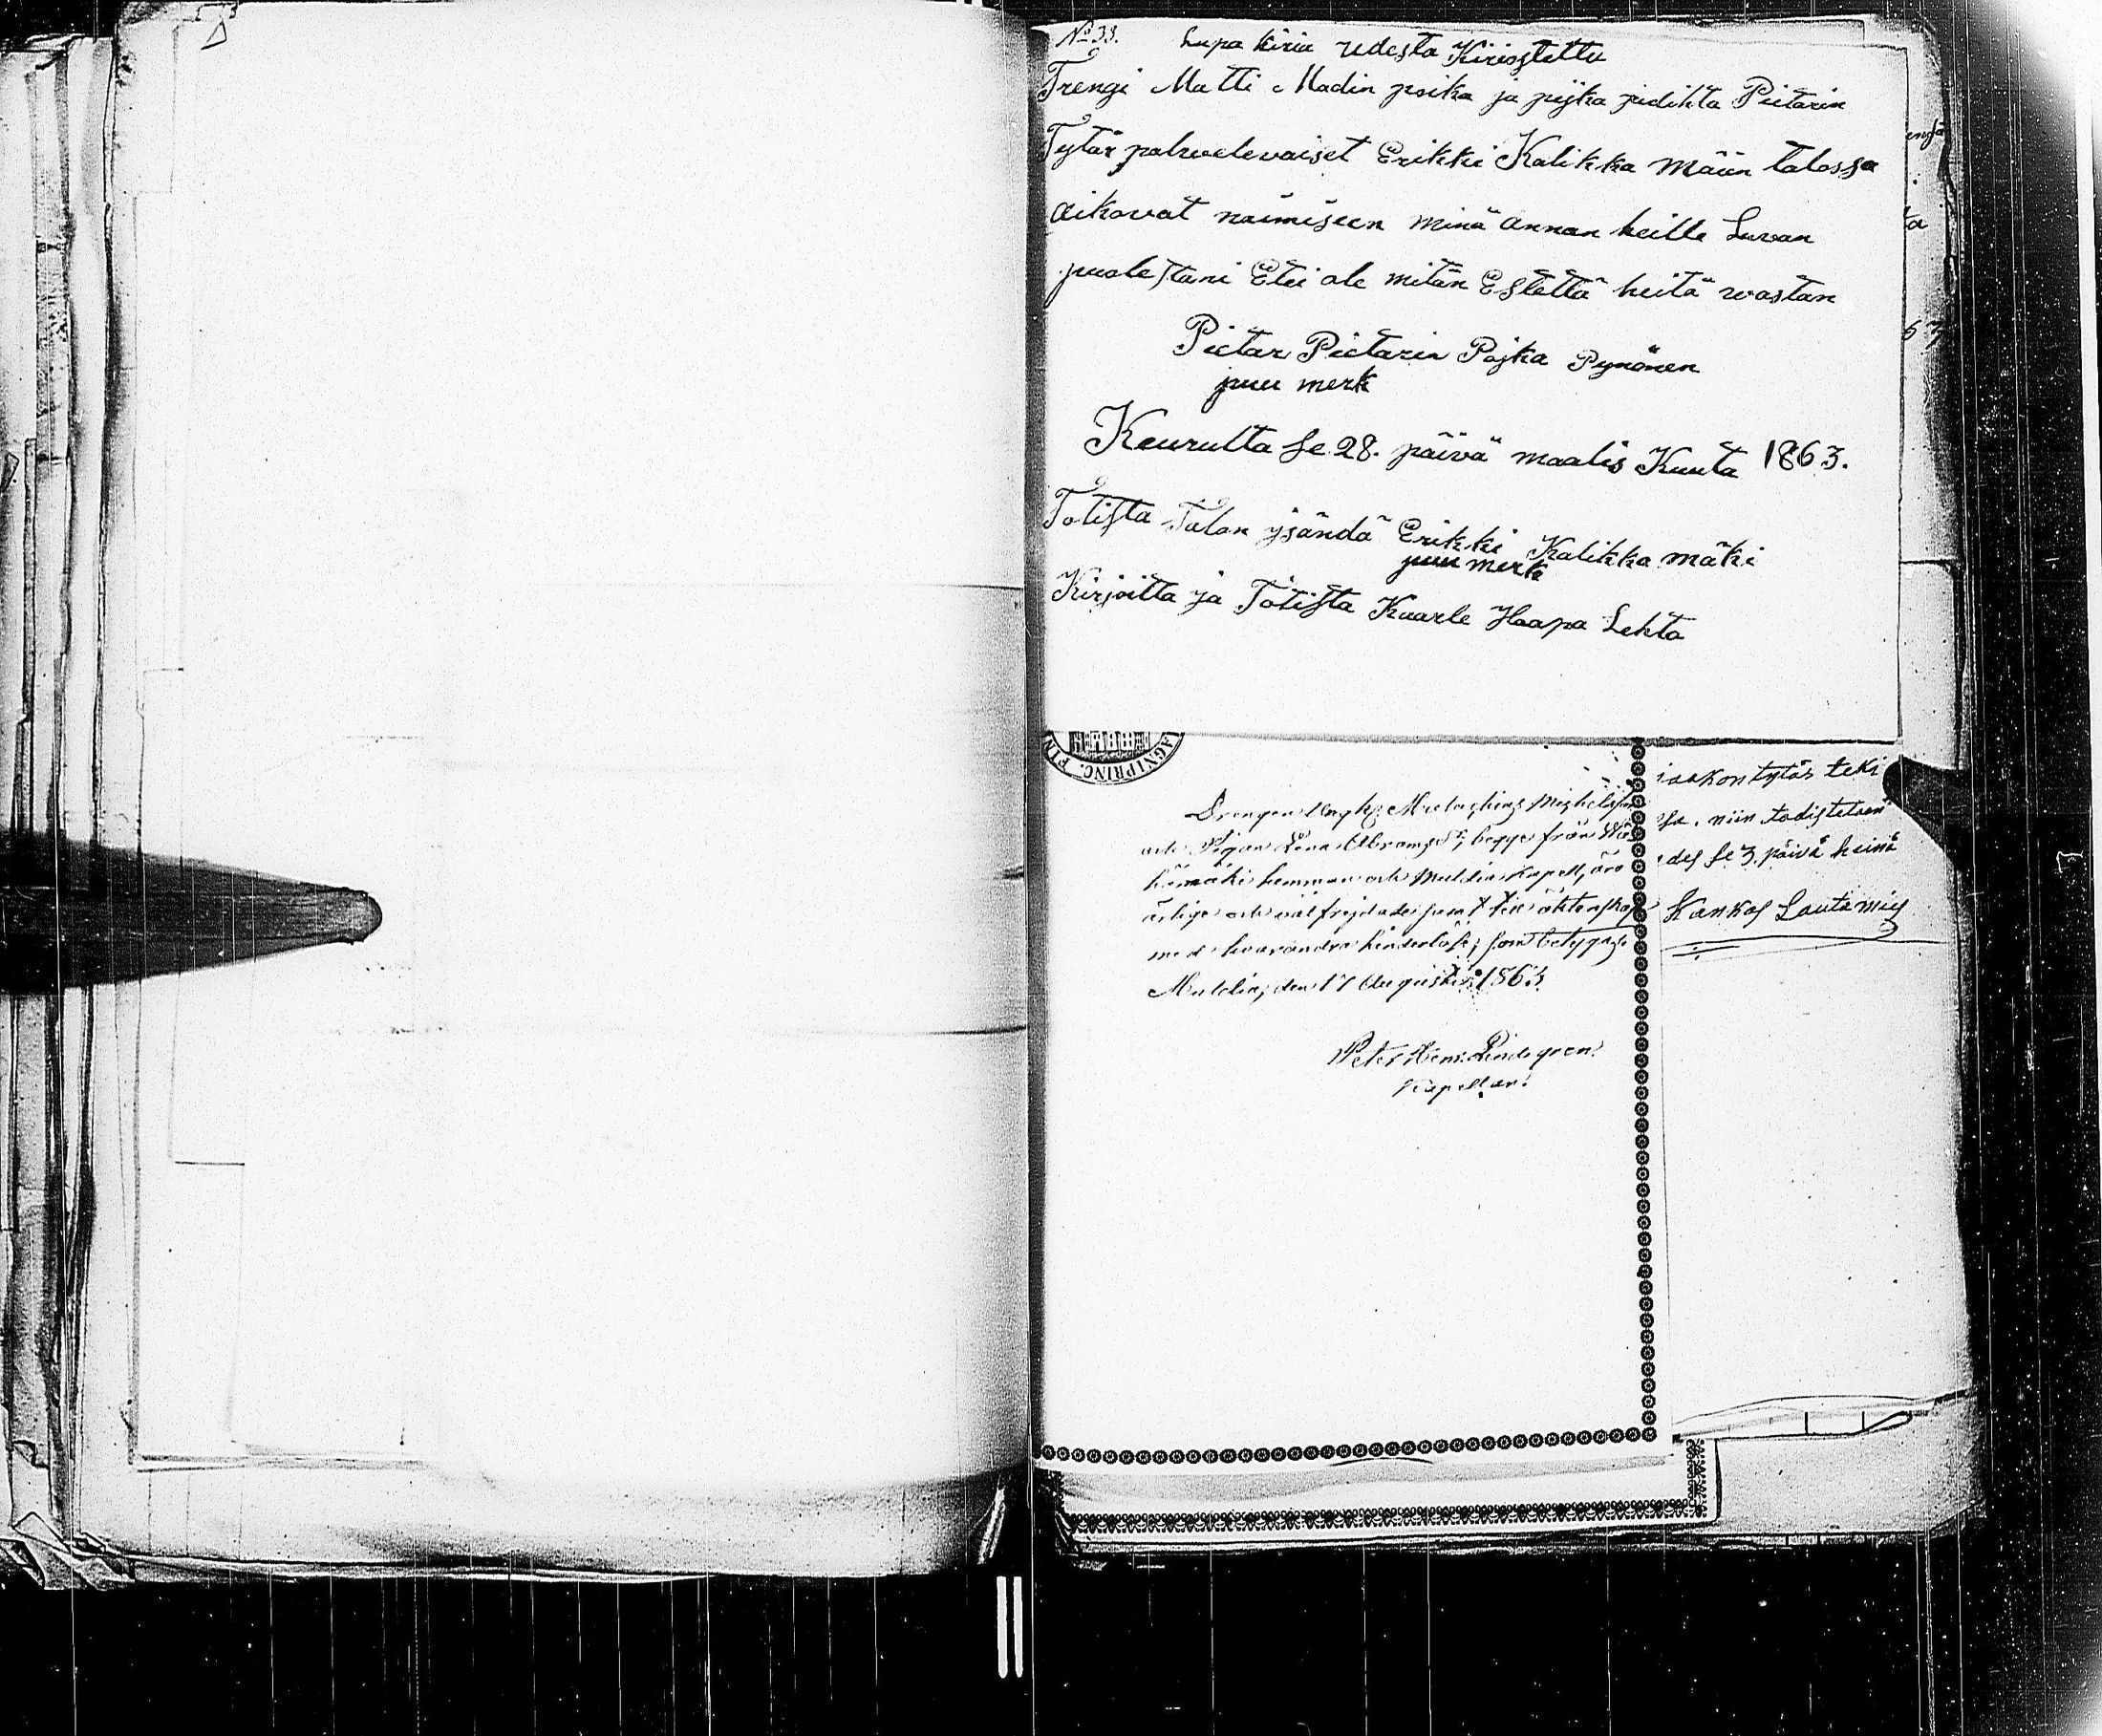 No 33. Lupa kiria udesta Kiriostettu
Trengi Matti Madin poika ja pijka jidihta Pietarin
Tytär palwelevaiset Erikki Kalikka mäin talossa
aikovat naimiseen minä annan heille Luvan
puolestani Etei ole mitän Estettä heitä wastan
Pietar Pietarin Pojka Pynönen
puu merk
Keurulta se 28. päivä maalis Kuuta 1863.
Totista Talon ysändä Erikki Kalikka mäki
puu merk
Kirjoitta ja Totista Kaarle Haapa Lehto
AGNI PRINC. FIN
Drengen Mathias Michelsson
och Pigan Lena Abramsdr, begge från
kämäki hemman och Multia Kapell, äro
ärlige och välfrejdade samt till äktenskap
med hvarandra hinderlöse; som betygas
Multia, den 17 Augusti 1863.
Peter Hem: Lindegren.
Kapellan.
iaakontytär teki
sa. niin todistetaan
des se 3. päivä heinä
Kankas Lautamies